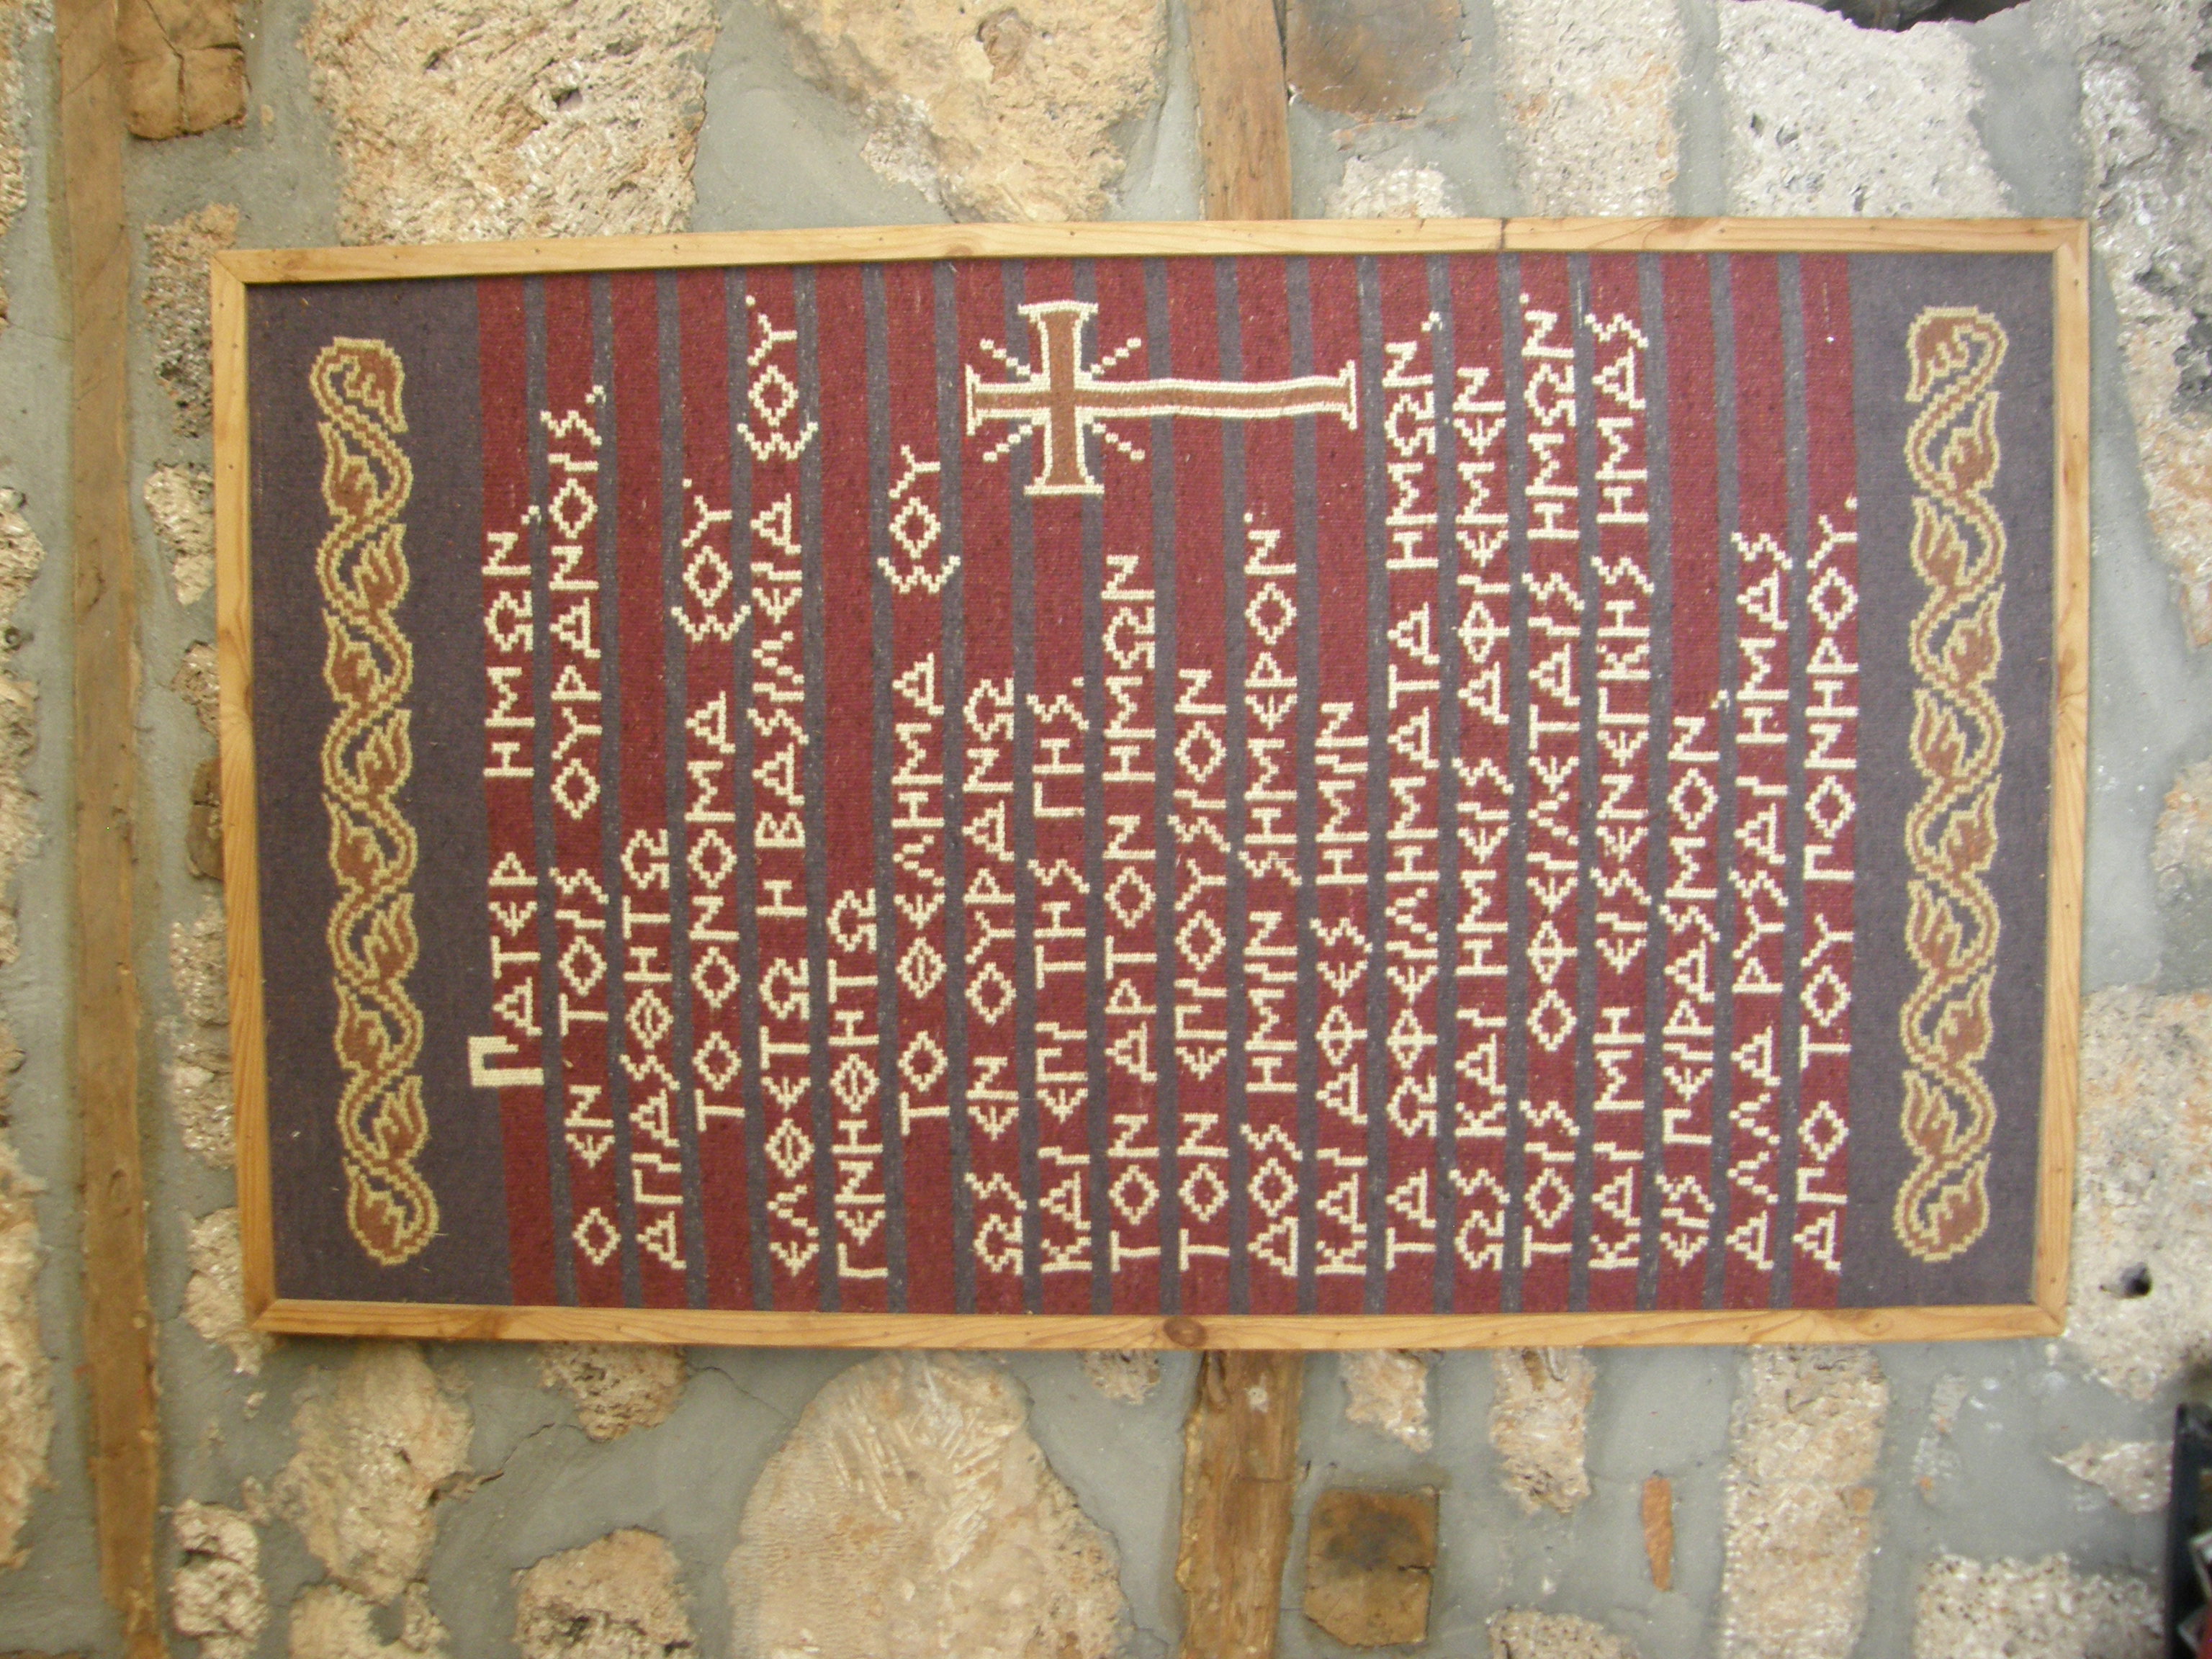 ΠΑΤΕΡ ΗΜΩΝ,
Ο ΕΝ ΤΟΙΣ ΟΥΡΑΝΟΙΣ,
ΑΓΙΑΣΘΗΤΩ
ΤΟ ΟΝΟΜΑ ΣΟΥ·
ΕΛΘΕΤΩ Η ΒΑΣΙΛΕΙΑ ΣΟΥ·
ΓΕΝΗΘΗΤΩ
ΤΟ ΘΕΛΗΜΑ ΣΟΥ
ΩΣ ΕΝ ΟΥΡΑΝΩ
ΚΑΙ ΕΠΙ ΤΗΣ ΓΗΣ·
ΤΟΝ ΑΡΤΟΝ ΗΜΩΝ
ΤΟΝ ΕΠΙΟΥΣΙΟΝ
ΔΟΣ ΗΜΙΝ ΣΗΜΕΡΟΝ·
ΚΑΙ ΑΦΕΣ ΗΜΙΝ
ΤΑ ΩΦΕΙΛΗΜΑΤΑ ΗΜΩΝ,
ΩΣ ΚΑΙ ΗΜΕΙΣ ΑΦΙΕΜΕΝ
ΤΟΙΣ ΟΦΕΙΛΕΤΑΙΣ ΗΜΩΝ·
ΚΑΙ ΜΗ ΕΙΣΕΝΕΓΚΗΣ ΗΜΑΣ
ΕΙΣ ΠΕΙΡΑΣΜΟΝ,
ΑΛΛΑ ΡΥΣΑΙ ΗΜΑΣ
ΑΠΟ ΤΟΥ ΠΟΝΗΡΟΥ.